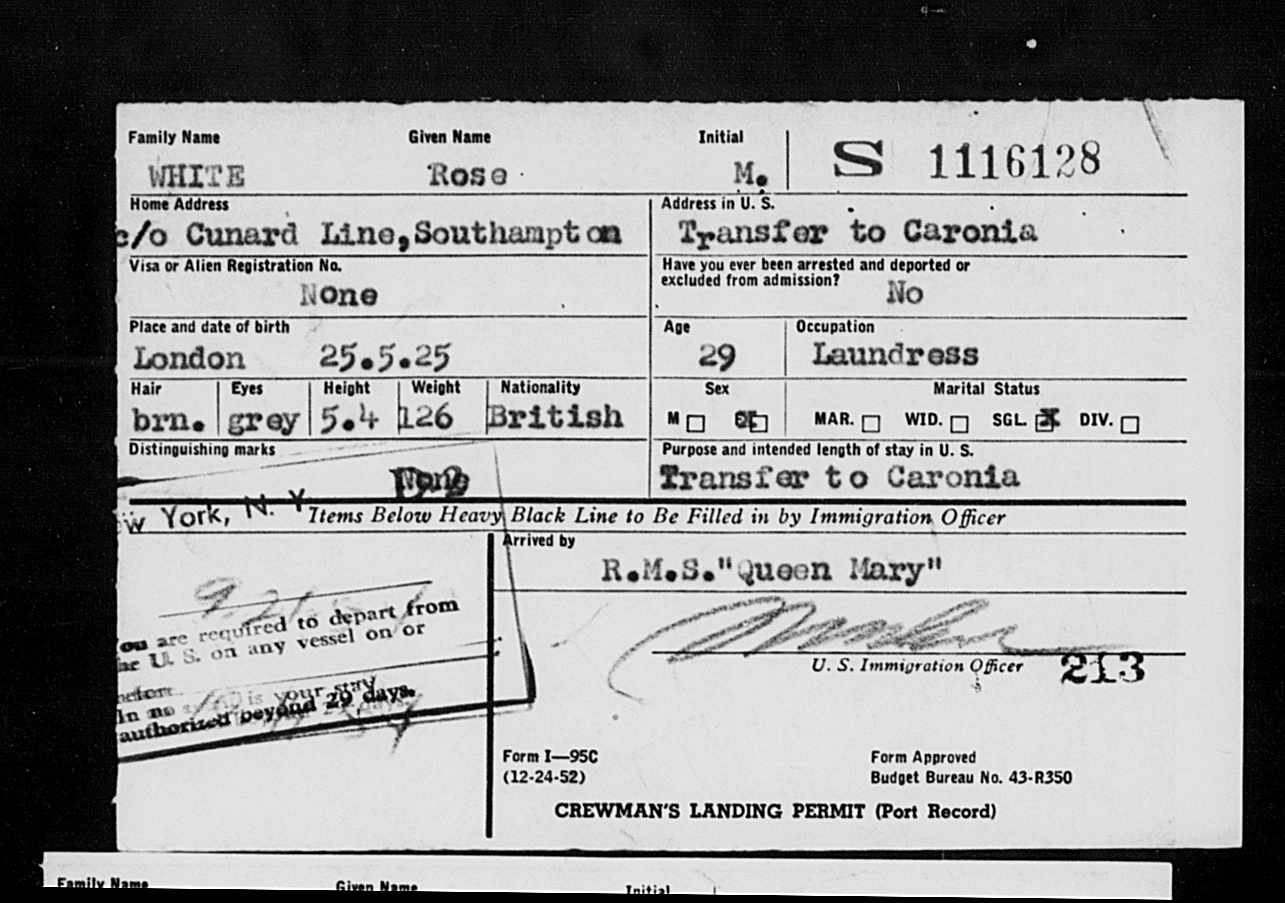 Family Name Given Name Initial
WHITE Rose M. S 1116128
Home Address Address in U. S.
c/o Cunard Line,Southampton Transfer to Caronia
Visa or Alien Registration No. Have you ever been arrested and deported or
excluded from admission?
None No
Place and date of birth Age Occupation
London 25.5.25 29 Laundress
Hair Eyes Height Weight Nationality Sex Marital Status
brn. grey 5.4 126 British M MAR. WID. SGL. X DIV.
Distinguishing marks Purpose and intended length of stay in U. S.
None Transfer to Caronia
York, N. Y. Items Below Heavy Black Line to Be Filled in by Immigration Officer
Arrived by
R.M.S."Queen Mary"
you are required to depart from
the U. S. on any vessel on or
before
In no is your stay
authorized beyond 29 days.
U. S. Immigration Officer 213
Form I—95C Form Approved
(12-24-52) Budget Bureau No. 43-R350
CREWMAN'S LANDING PERMIT (Port Record)
Family Name Given Name Initial